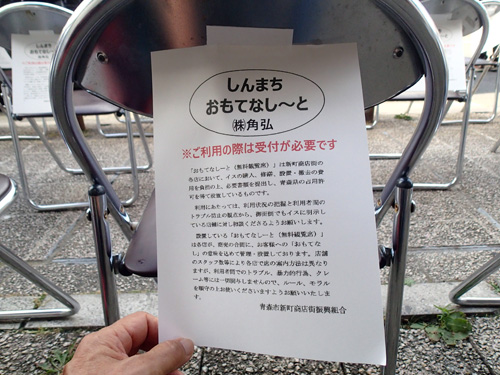 しんまち
おもてなし～と
㈱角弘
※ご利用の際は受付が必要です
「おもてなしーと（無料観覧席）」は新町商店街の
各店において、イスの購入、修繕、設置・撤去の費
用を負担の上、必要書類を提出し、青森県の占用許
可を得て設置しているものです。
利用にあたっては、利用状況の把握と利用者間の
トラブル防止の観点から、御面倒でもイスに明示し
ている店舗に対し御談くださるようお願いします。
設置している「おもてなしーと（無料観覧席）」
は各店が、祭見の合間に、お客様への「おもてな
し」の意味を込めて管理・設置しております。店舗
のスタッフ数等により各店で店の案内方法は異なり
ますが、利用者間でのトラブル、暴力的行為、クレ
ーム等には一切関与しませんので、ルール、モラル
を順守の上お使いくださいますようお願いいたしま
す。
青森市新町商店街振興組合
しんまち